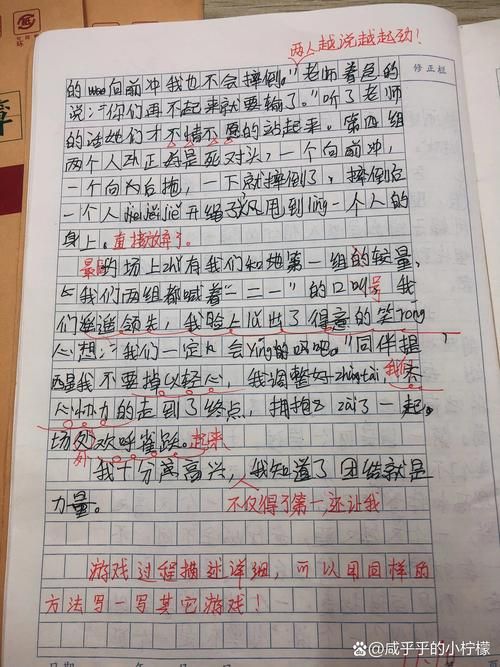 两人越说越起劲!
修正栏
的 向前冲我也不会摔倒。"老师着急的
说:"你们再不起来就要输了。"听了老师
的话她们才不情不愿的站起来。第四组
两个人 正 是死对头,一个向前冲,
一个向后拖,一下就摔倒了,摔倒后
一个人 开绳子 甩到lìng一个人的
身上。直接放弃了。
最 的场上zhǐ有我们和她第一组的较量,
我们两组都喊着"二一"的口叫号 我
们遥遥领先,我脸上 出了得意的笑róng
心想:"我们一定 会yíng的 吧。"同伴提
醒我不要掉以轻心,我调整好zhuàngtài,我们齐
心协力的走到了终点,拥抱 zài了一起。
场外欢呼雀跃。起来
外
我十分 高兴,我知道了团结就是
力量。
不仅得了第一,还让我
游戏过程描述详细,可以用同样的
方法写一写其它游戏!
日期
咸乎乎的小柠檬